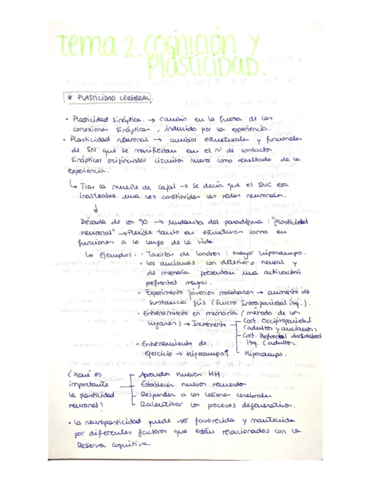 Tema 2. COGNICIÓN Y
PLASTICIDAD.
* PLASTICIDAD CEREBRAL.
• Plasticidad sináptica → Cambio en la fuerza de las
conexiones sinápticas, inducido por la experiencia.
• Plasticidad neuronal → cambios estructurales y funcionales
de SN que se manifiestan en el nº de contactos
sinápticos originando circuitos como resultado de la
experiencia.
↳ Tras la muerte de Cajal → Se decía que el SNC era
inalterable una vez constituidas las redes neuronales.
↓
Década de los 90 → del paradigma: "plasticidad
neuronal" → Flexible tanto en estructura como en
funciones a lo largo de la vida
↳ Ejemplos: • Taxistas de Londres: mayor hipocampo.
• los ancianos con deterioro neural y
de memoria presentan una activación
prefrontal mayor.
• Experimento jóvenes malabares → aumento de
sustancia gris (Surco Intraparietal izq.).
• Entrenamiento en memoria (método de los
lugares) → Incremento Cort. Occipitoparietal
(adultos y ancianos)
Cort. Prefrontal dorsolateral
izq. (adultos).
• Entrenamiento de
ejercicio → Hipocampo↑ Hipocampo.
¿Xqué es
importante
la plasticidad
neuronal?
Aprender nuevas HH.
Establecer nuevos recuerdos
Responder a las lesiones cerebrales
Ralentizar los procesos degenerativos.
• la neuroplasticidad puede ser favorecida y mantenida
por diferentes factores que están relacionados con la
Reserva Cognitiva.